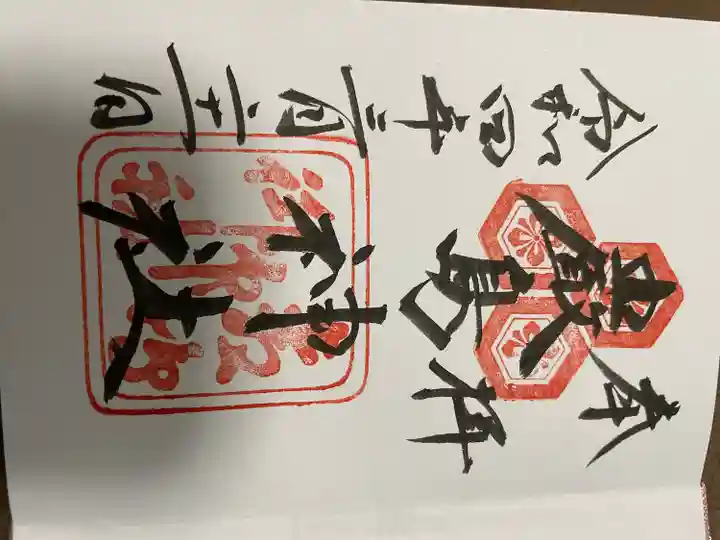 奉拝
厳島神社
令和四年三月二十一日